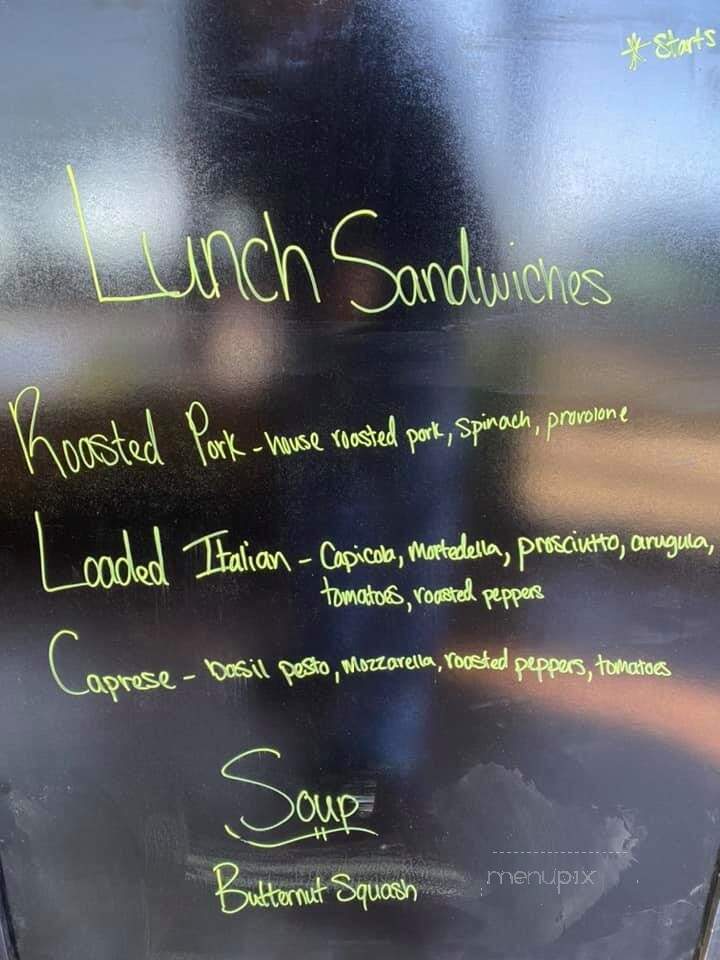 * Starts
Lunch Sandwiches
Roasted Pork - house roasted pork, spinach, provolone
Loaded Italian - Capicola, mortedella, prosciutto, arugula,
tomatoes, roasted peppers
Caprese - basil pesto, mozzarella, roasted peppers, tomatoes
Soup
Butternut Squash
menupix